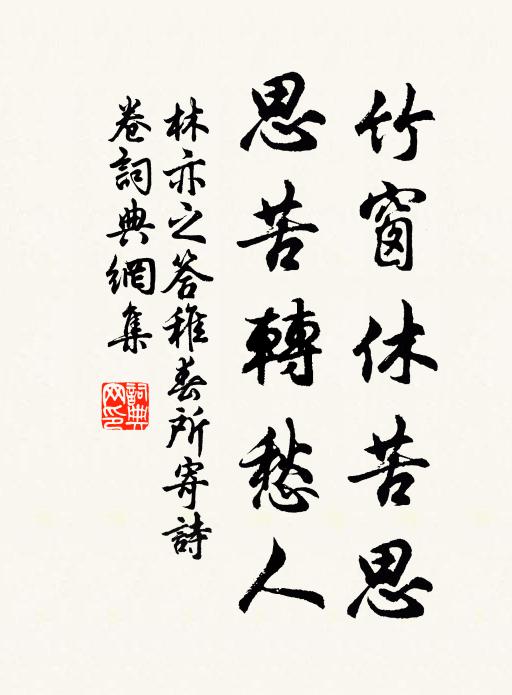 竹窗休苦思
思苦轉愁人
林亦之答稚春所寄詩
卷詞典網集
詞典网印